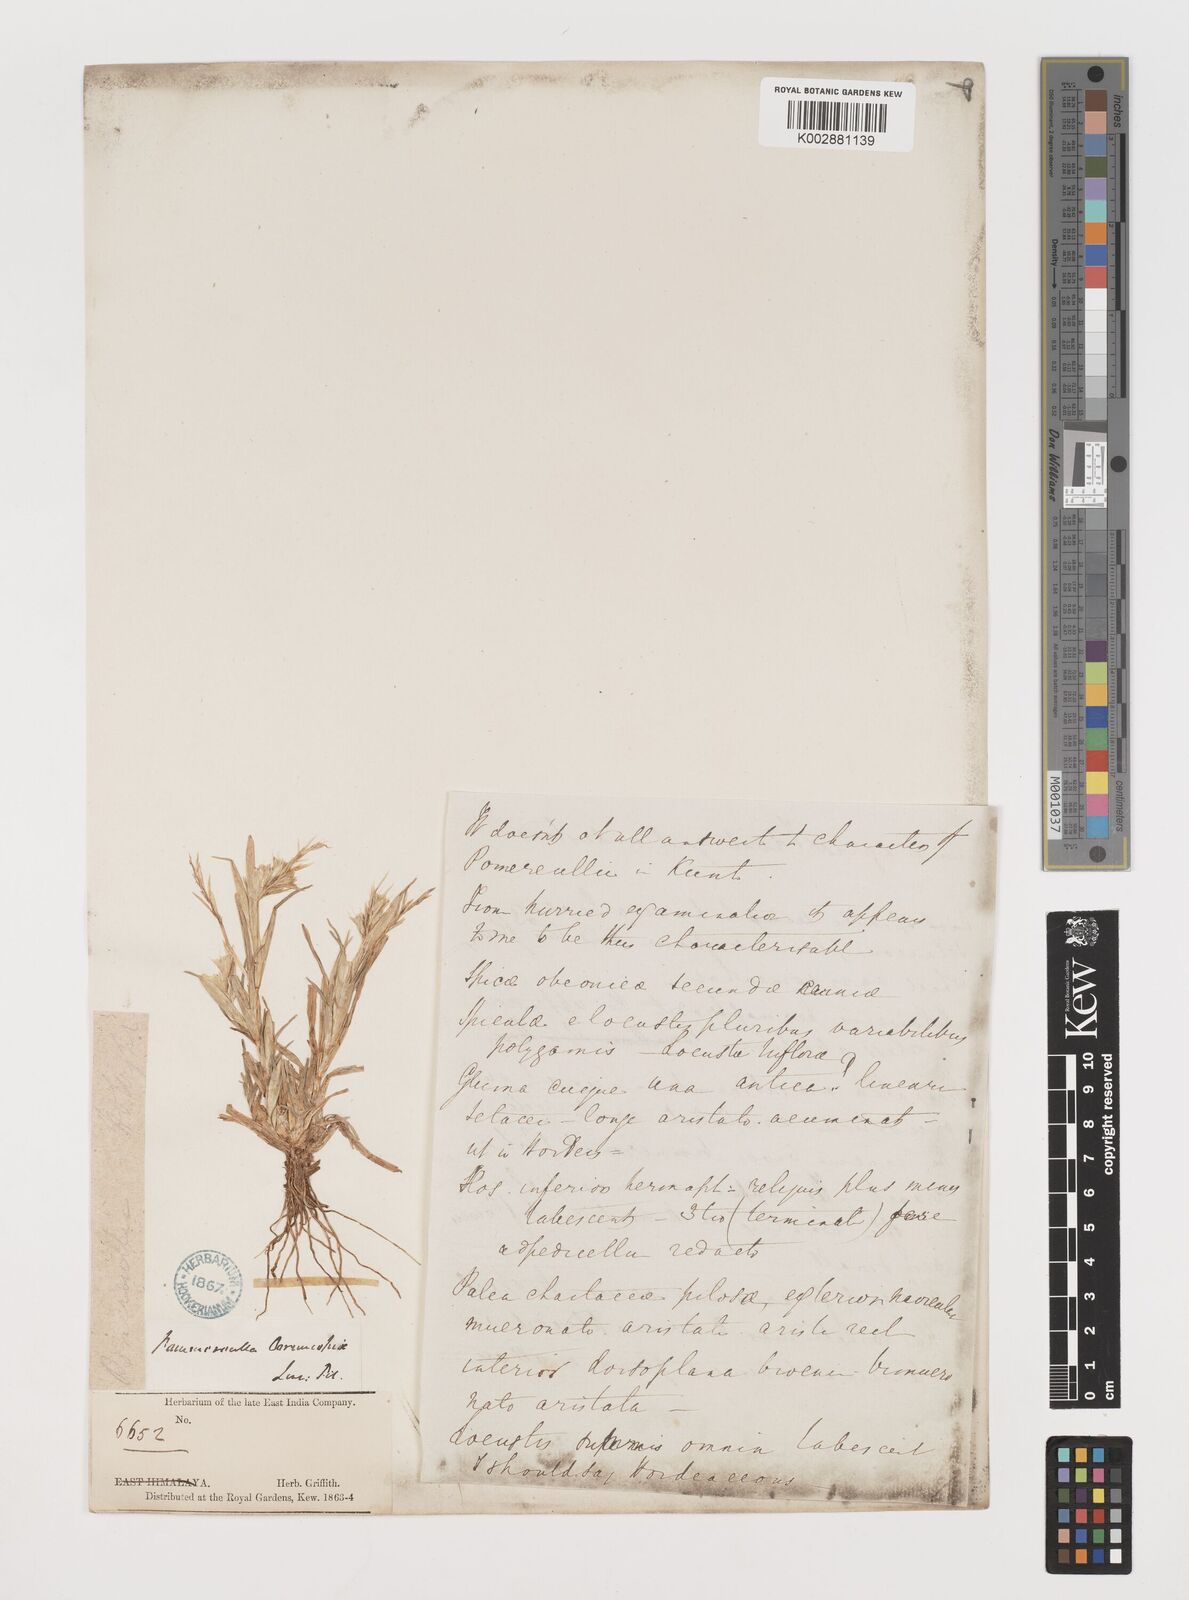 ROYAL BOTANIC GARDENS KEW
K002881139
It doesn't at all answer to character of
Pomereullia in Kunt.
From hurried examination it appears
to me to be thus characterisable
Spicæ obconicæ secundæ
Spiculæ e locustis pluribus variabilibus
polygamis – Locustæ triflora?
Gluma cuique una antica? lineari
setacei – longe aristato. acuminat –
ut in Hordeis =
Flos. inferior hermaph = reliquis plus minus
tabescent – 3tio (terminali) fere
ad pedicellum redacto
Palea chartaceæ pilosæ, exterior naviculari
mucronato. aristati. arista rect
interior dorsoplana
nato aristata –
Locustis supernis omnia tabescent
I should say Hordeaceous
HERBARIUM
1867
HOOKERIANUM
Pommereulla Cornucopiæ
Linn: fil.
Herbarium of the late East India Company.
No.
6652
EAST HIMALAYA. Herb. Griffith.
Distributed at the Royal Gardens, Kew. 1863-4
inches
centimetres
Density
Don Williams
M001037
Kew
Royal Botanic Gardens
0 1 2 3 4 5 6 7 8 9 10
cm
copyright reserved